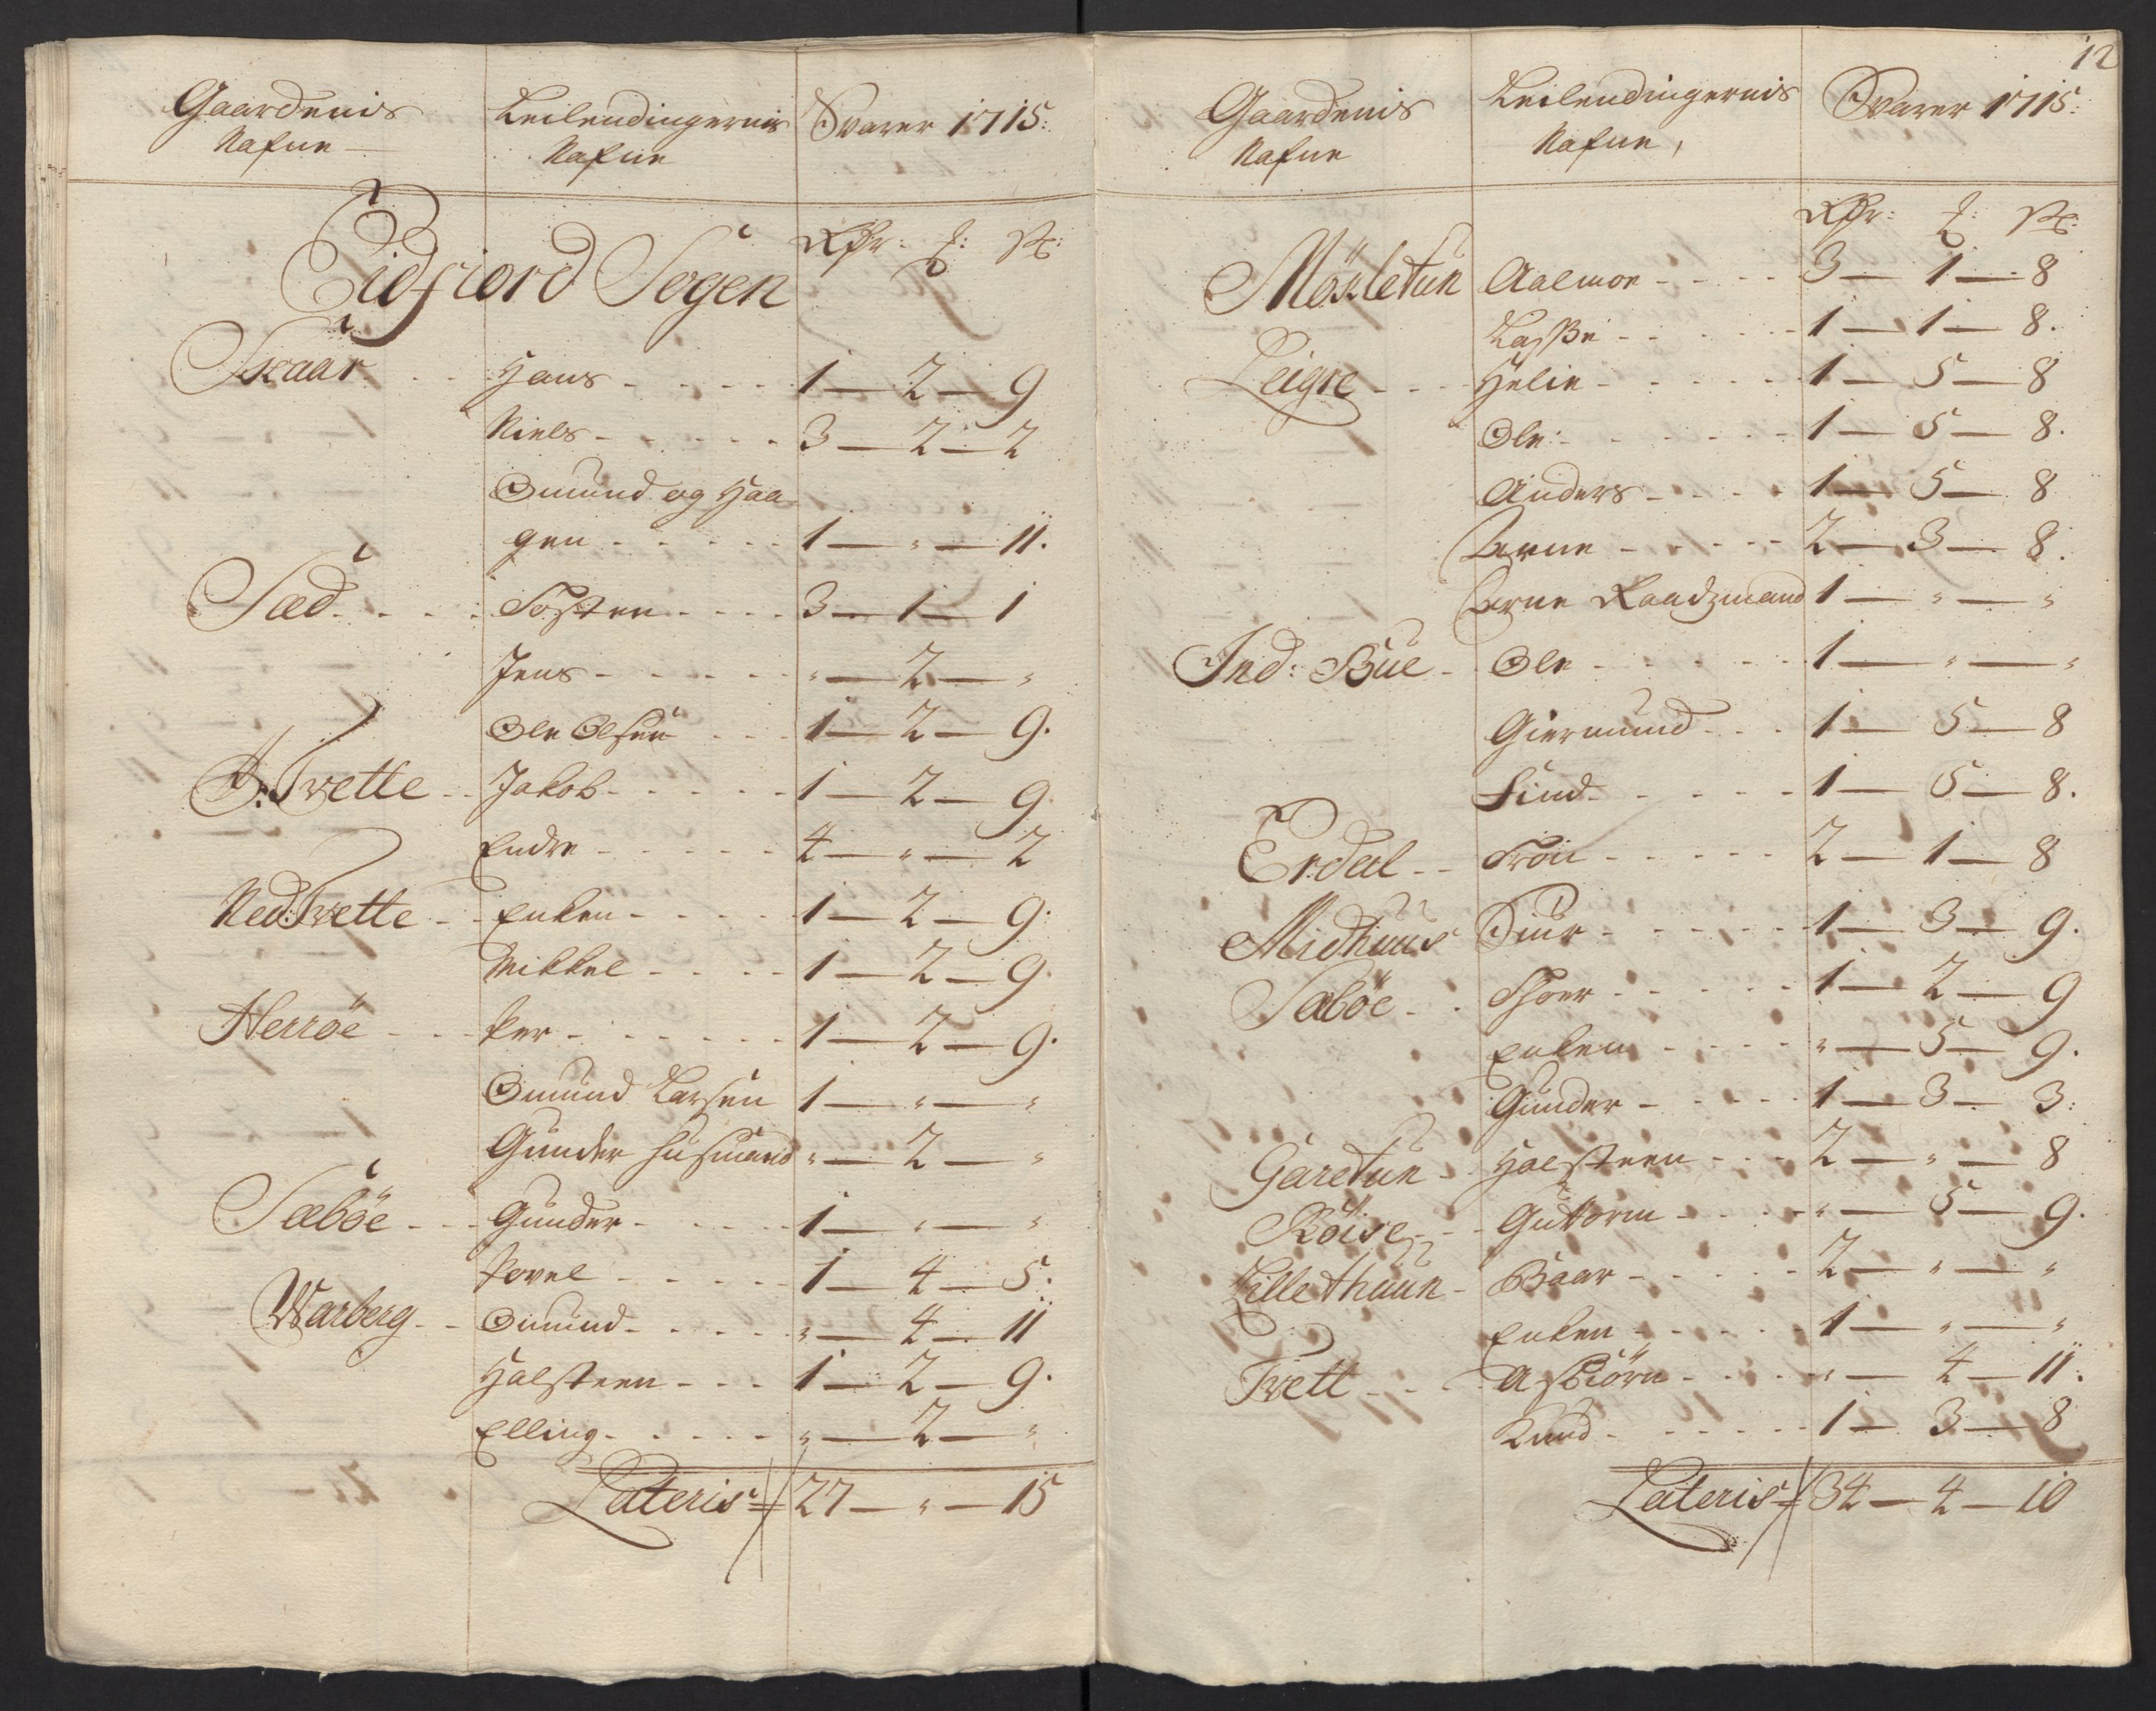 Gaardenis Leilendingernis Svarer 1715:
Nafne Nafne
Eidfiord Sogen
Skaar Hans 1 — 2 — 9
Niels 3 — 2 — 2
Omund og Haa-
gen 1 — " — 11.
Sæd Tosten 3 — 1 — 1
Jens " — 2 — "
Ole Olsen 1 — 2 — 9.
Tvette Jakob 1 — 2 — 9.
Endre 4 — " — 2
Ned: Tvette Enken 1 — 2 — 9.
Mikkel 1 — 2 — 9.
Herröe Per 1 — 2 — 9.
Omund Larsen 1 — " — "
Gunder Husmand " — 2 — "
Sæböe Gunder 1 — " — "
Povel 1 — 4 — 5:
Warberg Omund " — 4 — 11
Halsteen 1 — 2 — 9.
Elling " — 2 — "
Lateris 27 — " — 15
12
Gaardenis Leilendingernis Svarer 1715:
Nafne Nafne,
Mösletun Aalmon 3 — 1 — 8
Lasse 1 — 1 — 8.
Leigre Helie 1 — 5 — 8
Ole 1 — 5 — 8.
Anders 1 — 5 — 8
Arne 2 — 3 — 8.
Arne Raadzmand 1 — " — "
Ind: Büe Ole 1 — " — "
Giermund 1 — 5 — 8
Find 1 — 5 — 8.
Erdal Tron 2 — 1 — 8
Midhuus Siur 1 — 3 — 9.
Sæböe Thoer 1 — 2 — 9
Enken " — 5 — 9.
Gunder 1 — 3 — 3:
Garetun Halsteen 2 — " — 8
Röise Guttorm " — 5 — 9.
Lillethuun Baar 2 — " — "
Enken 1 — " — "
Tvett Asbiörn " — 4 — 11.
Knud 1 — 3 — 8
Lateris 34 — 4 — 10